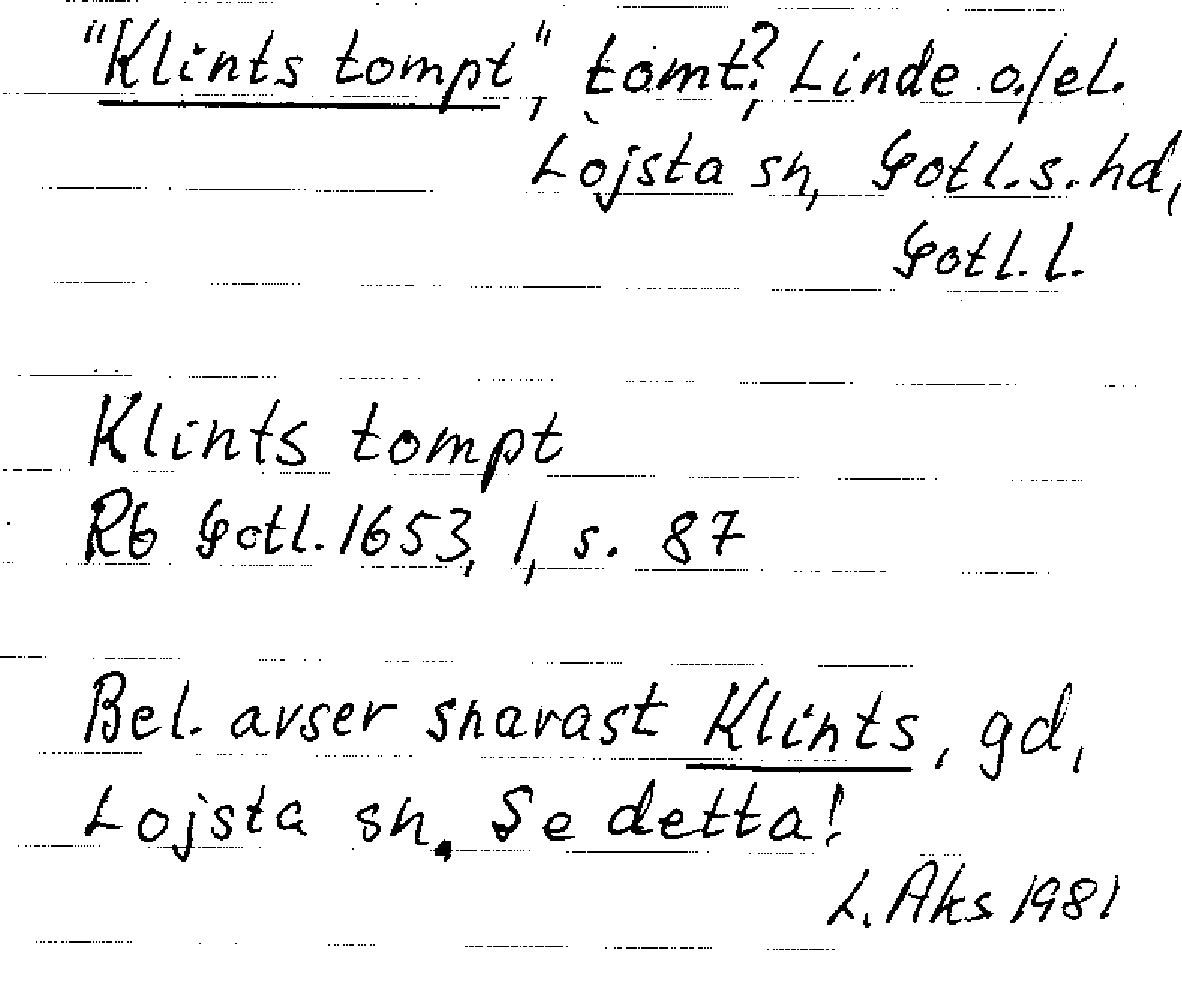 "Klints tompt", tomt?, Linde o./el.
Lojsta sn, Gotl.s.hd,
Gotl.l.
Klints tompt
Rb Gotl. 1653, 1, s. 87
Bel. avser snarast Klints, gd,
Lojsta sn. Se detta!
L. Aks 1981